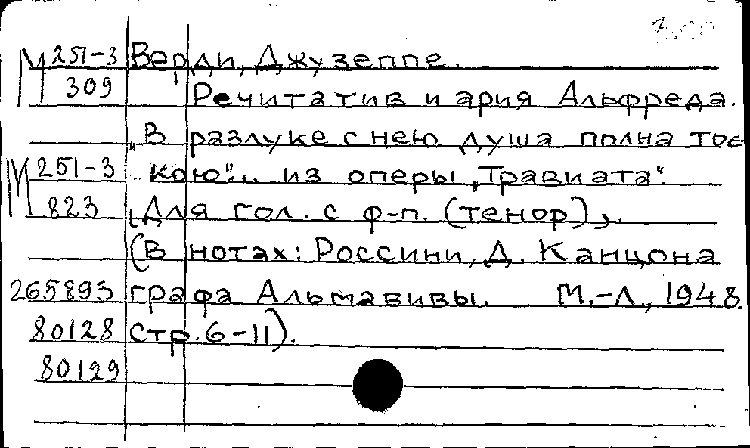 М 251-3 Верди, Джузеппе.
309 Речитатив и ария Альфреда.
„В разлуке с нею душа полна тос
М 251-3 кою"... из оперы „Травиата".
823 (Для гол. с ф-п. (тенор)).
(В нотах: Россини, Д. Канцона
265893 графа Альмавивы. М.-Л., 1948.
80128 стр. 6-11).
80129